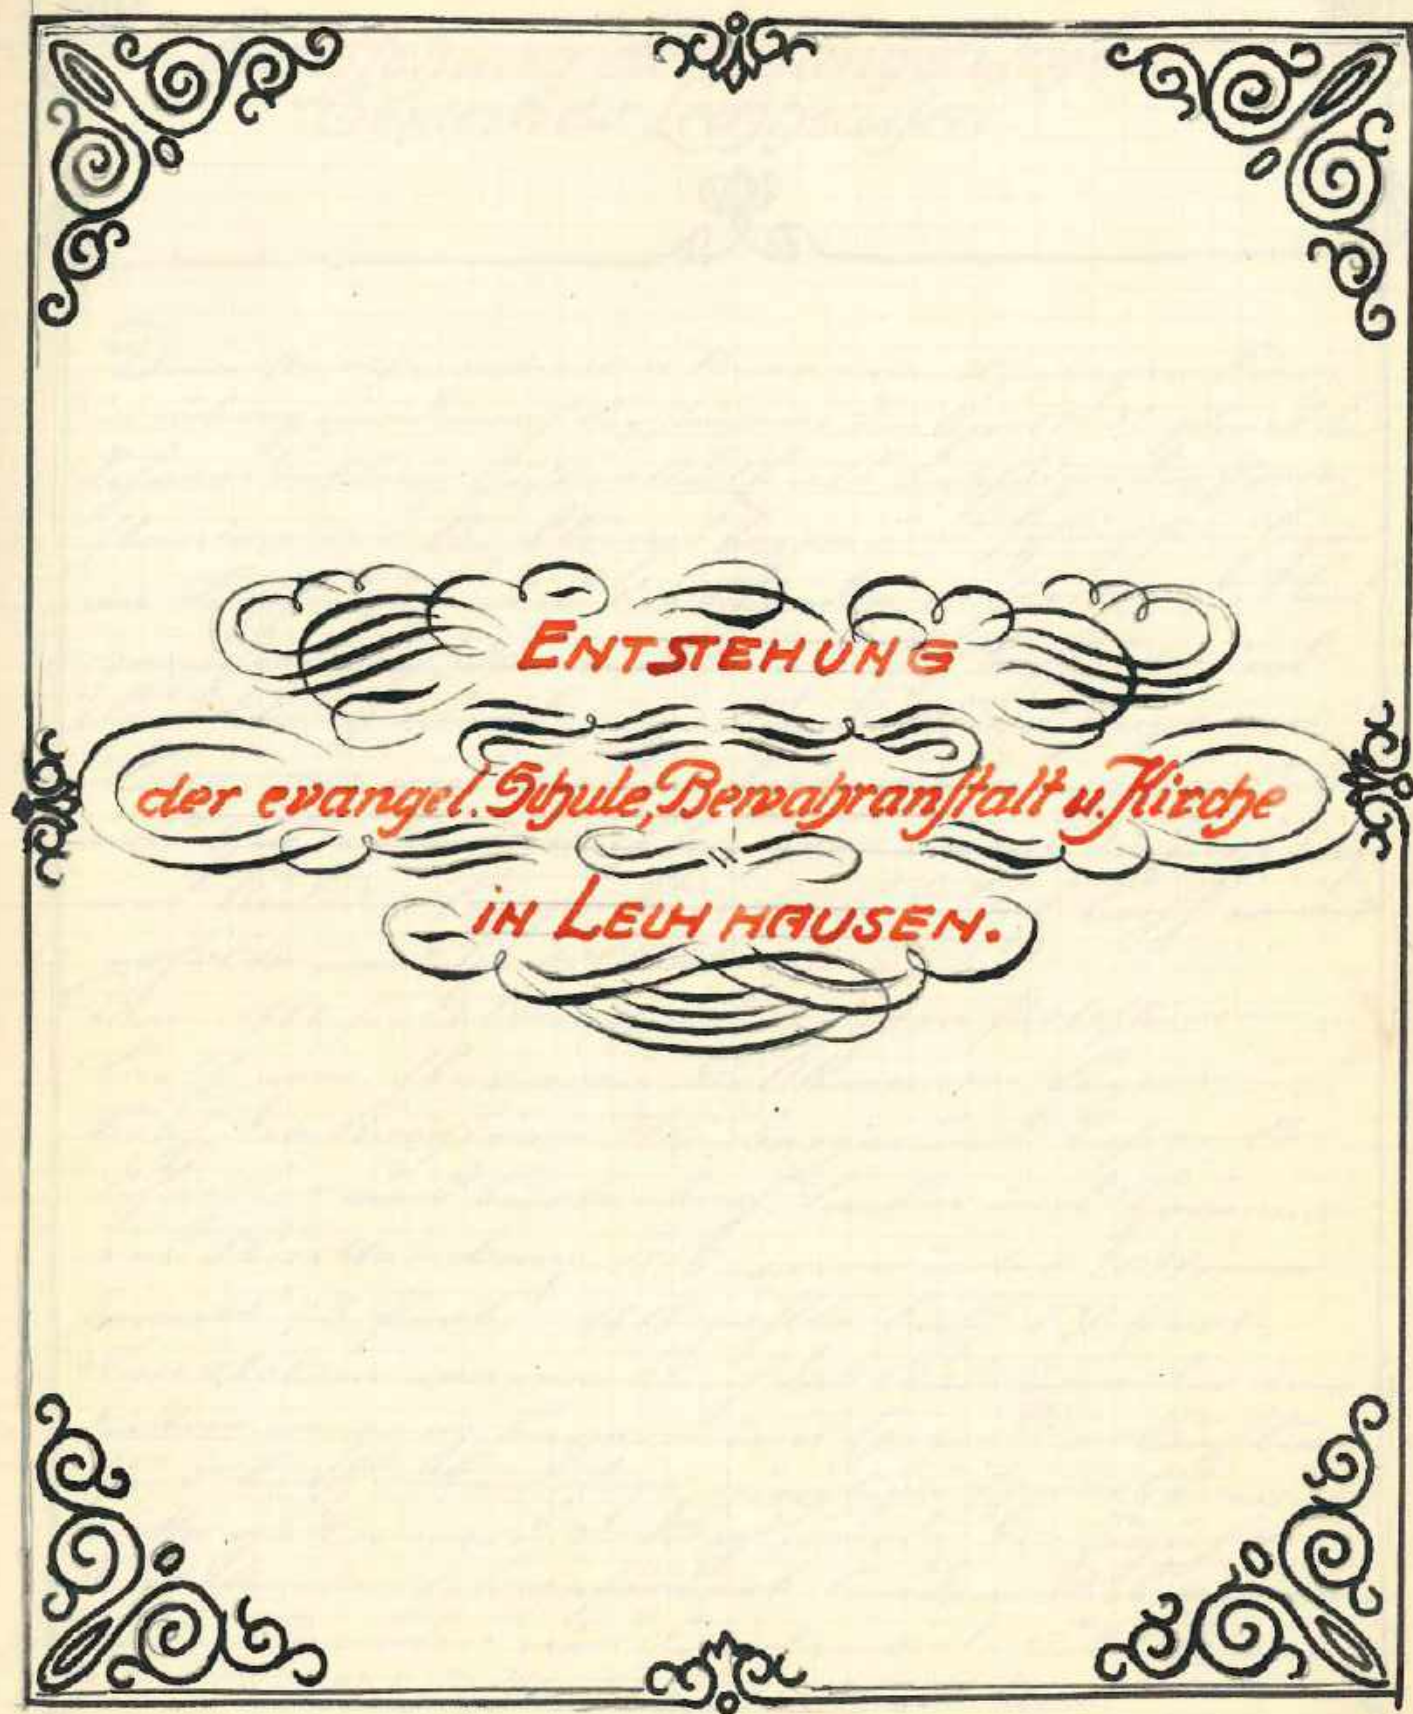 ENTSTEHUNG
der evangel. Schule, Bewahranſtalt u. Kirche
IN LEINHAUSEN.